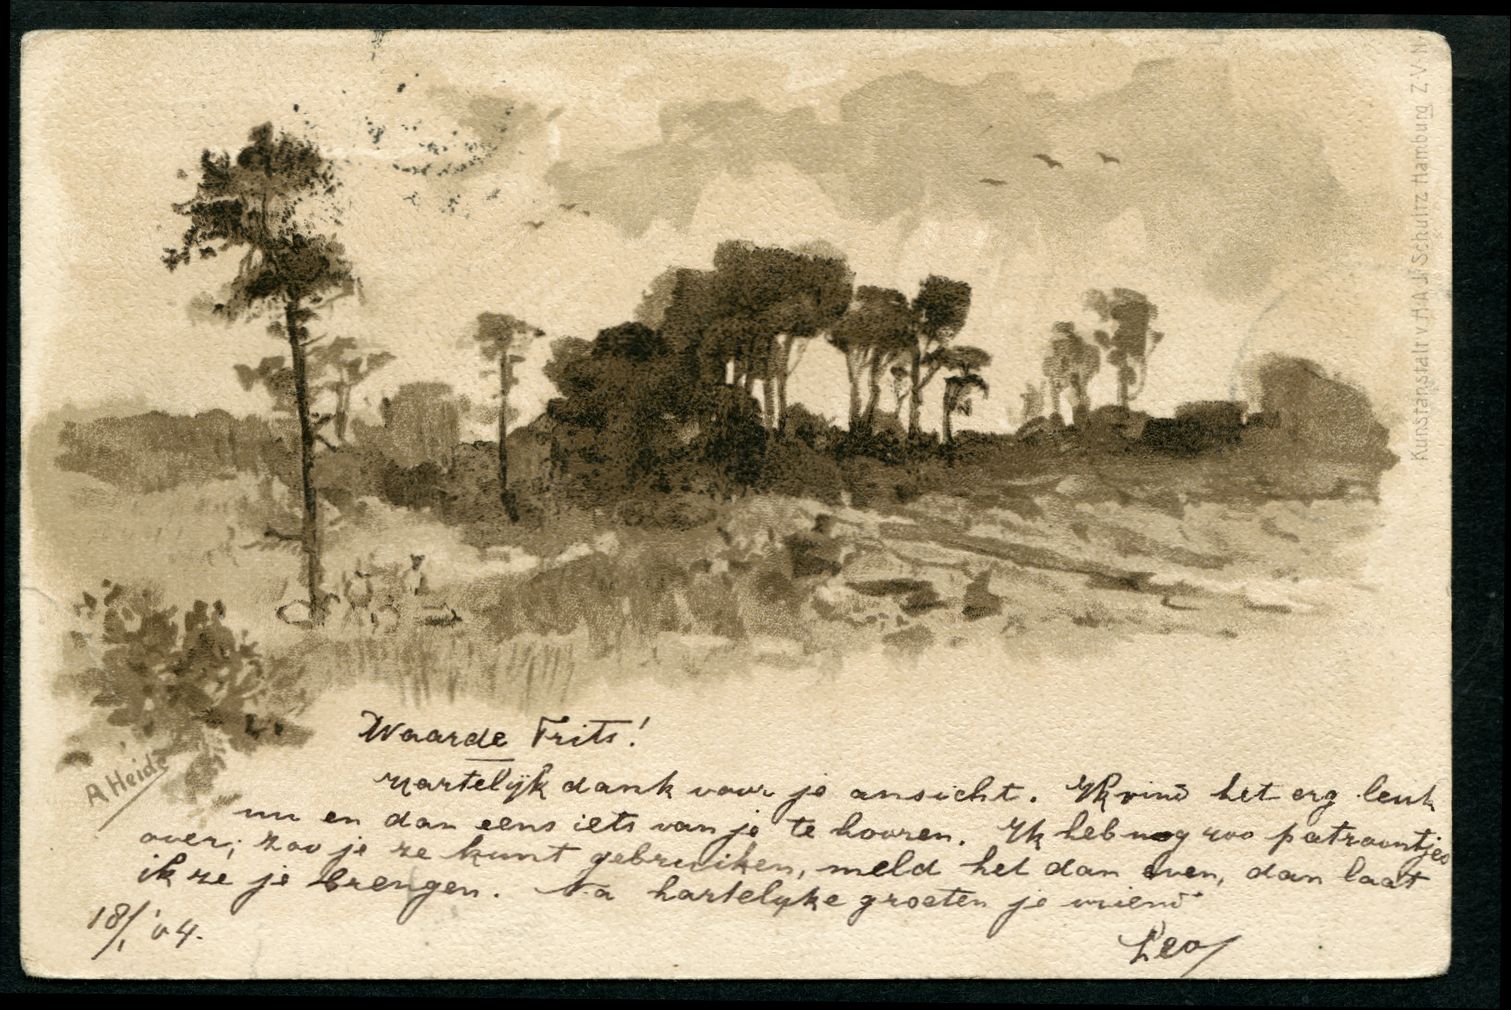 Kunstanstalt v. H. A. J. Schultz Hamburg Z. V. N
A Heide
Waarde Frits!
Hartelijk dank voor je ansicht. Ik vind het erg leuk
nu en dan eens iets van je te hooren. Ik heb nog 200 patroontjes
over; zoo je ze kunt gebruiken, meld het dan even, dan laat
ik ze je brengen. Na hartelijke groeten je vriend
Leo
18/1 '04.